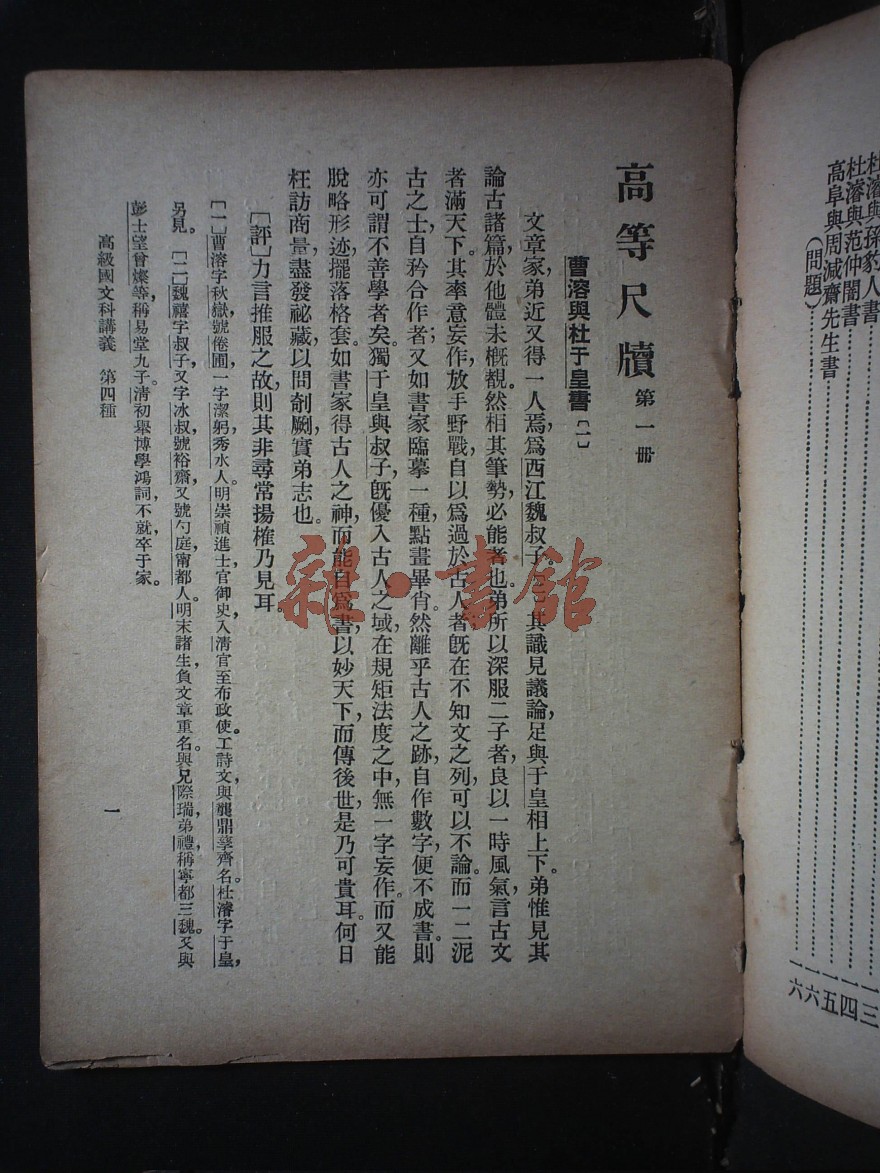 杜濬與孫豹人書……一三
杜濬與范仲闇書……一四
高阜與周減齋先生書……一五
(問題)……一六
一六
高等尺牘 第一册
曹溶與杜于皇書〔一〕
文章家,弟近又得一人焉,爲西江魏叔子。〔二〕其識見議論,足與于皇相上下。弟惟見其
論古諸篇,於他體未槪覩。然相其筆勢,必能者也。弟所以深服二子者,良以一時風氣,言古文
者滿天下。其率意妄作,放手野戰,自以爲過於古人者,旣在不知文之列,可以不論。而一二泥
古之士,自矜合作者;又如書家臨摹一種,點畫畢肖,然離乎古人之跡,自作數字,便不成書。則
亦可謂不善學者矣。獨于皇與叔子,旣優入古人之域,在規矩法度之中,無一字妄作。而又能
脫略形迹,擺落格套。如書家得古人之神,而能自爲書,以妙天下,而傳後世,是乃可貴耳。何日
枉訪商量,盡發祕藏,以問剞劂,實弟志也。
〔評〕力言推服之故,則其非尋常揚榷乃見耳。
〔一〕曹溶字秋嶽,號倦圃,一字潔躬,秀水人。明崇禎進士,官御史,入淸官至布政使。工詩文,與龔鼎孳齊名。杜濬字于皇,
另見。〔二〕魏禧字叔子,又字冰叔,號裕齋,又號勺庭,甯都人。明末諸生,負文章重名。與兄際瑞,弟禮,稱寧都三魏。又與
彭士望曾燦等,稱易堂九子。淸初舉博學鴻詞,不就,卒于家。
高級國文科講義 第四種
一
雜·書館